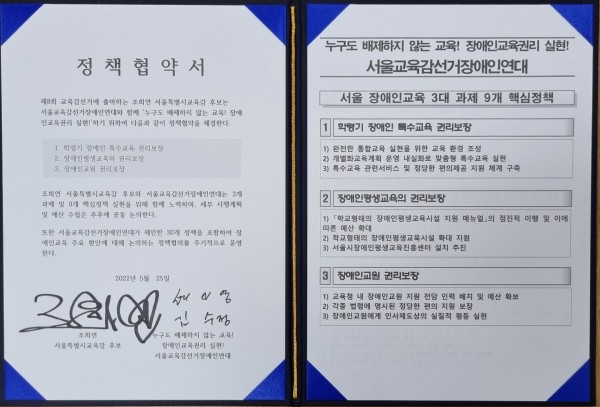 정책협약서
제8회 교육감선거에 출마하는 조희연 서울특별시교육감 후보는
서울교육감선거장애인연대와 함께 '누구도 배제하지 않는 교육! 장애
인교육권리 실현!'하기 위하며 다음과 같이 정책협약을 체결한다.
1. 학령기 장애인 특수교육 권리보장
2. 장애인평생교육의 권리보장
3. 장애인교원 권리보장
조희연 서울특별시교육감 후보와 서울교육감선거장애인연대는 3개
과제 및 9개 핵심정책 실현을 위해 함께 노력하며, 세부 시행계획
및 예산 수립은 추후에 공동 논의한다.
또한 서울교육감선거장애인연대가 제안한 30개 정책을 포함하여 장
애인교육 주요 현안에 대해 논의하는 정책협의를 주기적으로 운영
한다.
2022년 5월 25일
조희연
서울특별시교육감 후보
김수정
누구도 배제하지 않는 교육!
장애인교육권리 실현!
서울교육감선거장애인연대
누구도 배제하지 않는 교육! 장애인교육권리 실현!
서울교육감선거장애인연대
서울 장애인교육 3대 과제 9개 핵심정책
1 학령기 장애인 특수교육 권리보장
1) 완전한 통합교육 실현을 위한 교육 환경 조성
2) 개별화교육계획 운영 내실화로 맞춤형 특수교육 실현
3) 특수교육 관련서비스 및 정당한 편의제공 지원 체계 구축
2 장애인평생교육의 권리보장
1) 「학교형태의 장애인평생교육시설 지원 매뉴얼」의 점진적 이행 및 이에
따른 예산 확대
2) 학교형태의 장애인평생교육시설 확대 지원
3) 서울시장애인평생교육진흥센터 설치 추진
3 장애인교원 권리보장
1) 교육청 내 장애인교원 지원 전담 인력 배치 및 예산 확보
2) 각종 법령에 명시된 정당한 편의 지원 보장
3) 장애인교원에게 인사제도상의 실질적 평등 실현